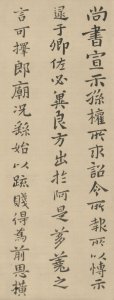 尚書宣示孫權所求詔令所報所以博示
逮于卿佐必冀良方出於阿是芻蕘之
言可擇郎廟況繇始以疏賤得為前恩橫